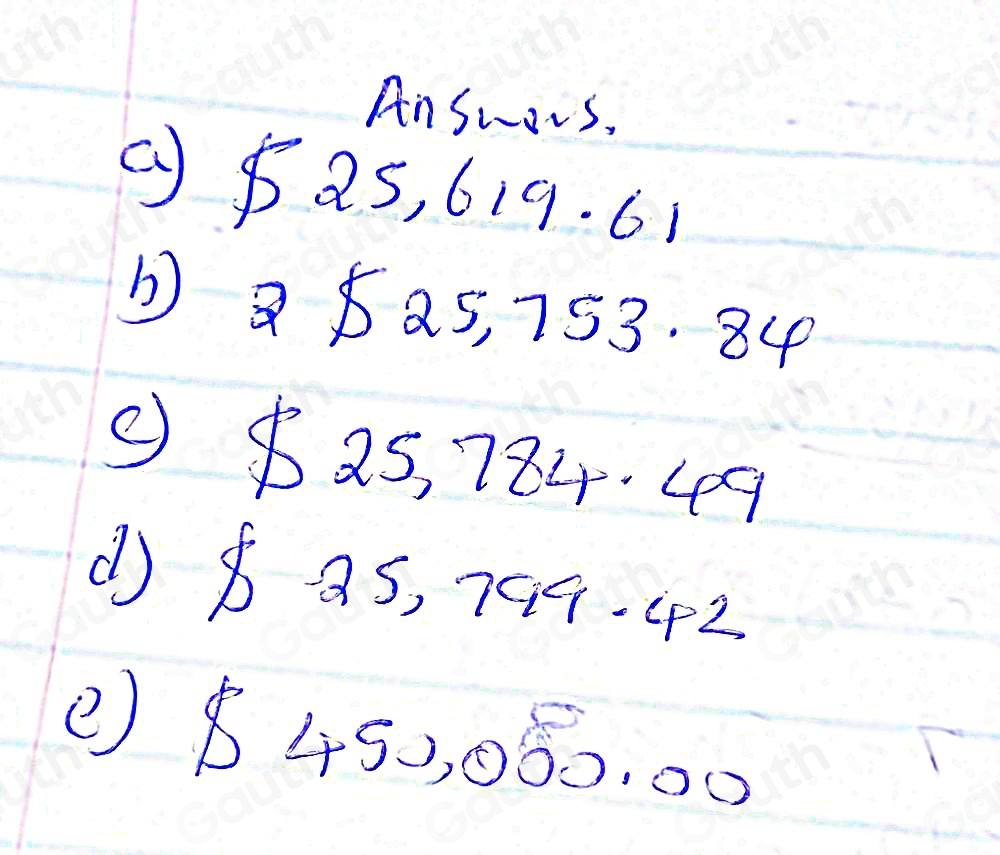 Answers.
a) $ 25,619.61
b) 2 $ 25,753.84
c) $ 25,784.49
d) $ 25,799.42
e) $ 450,000.00